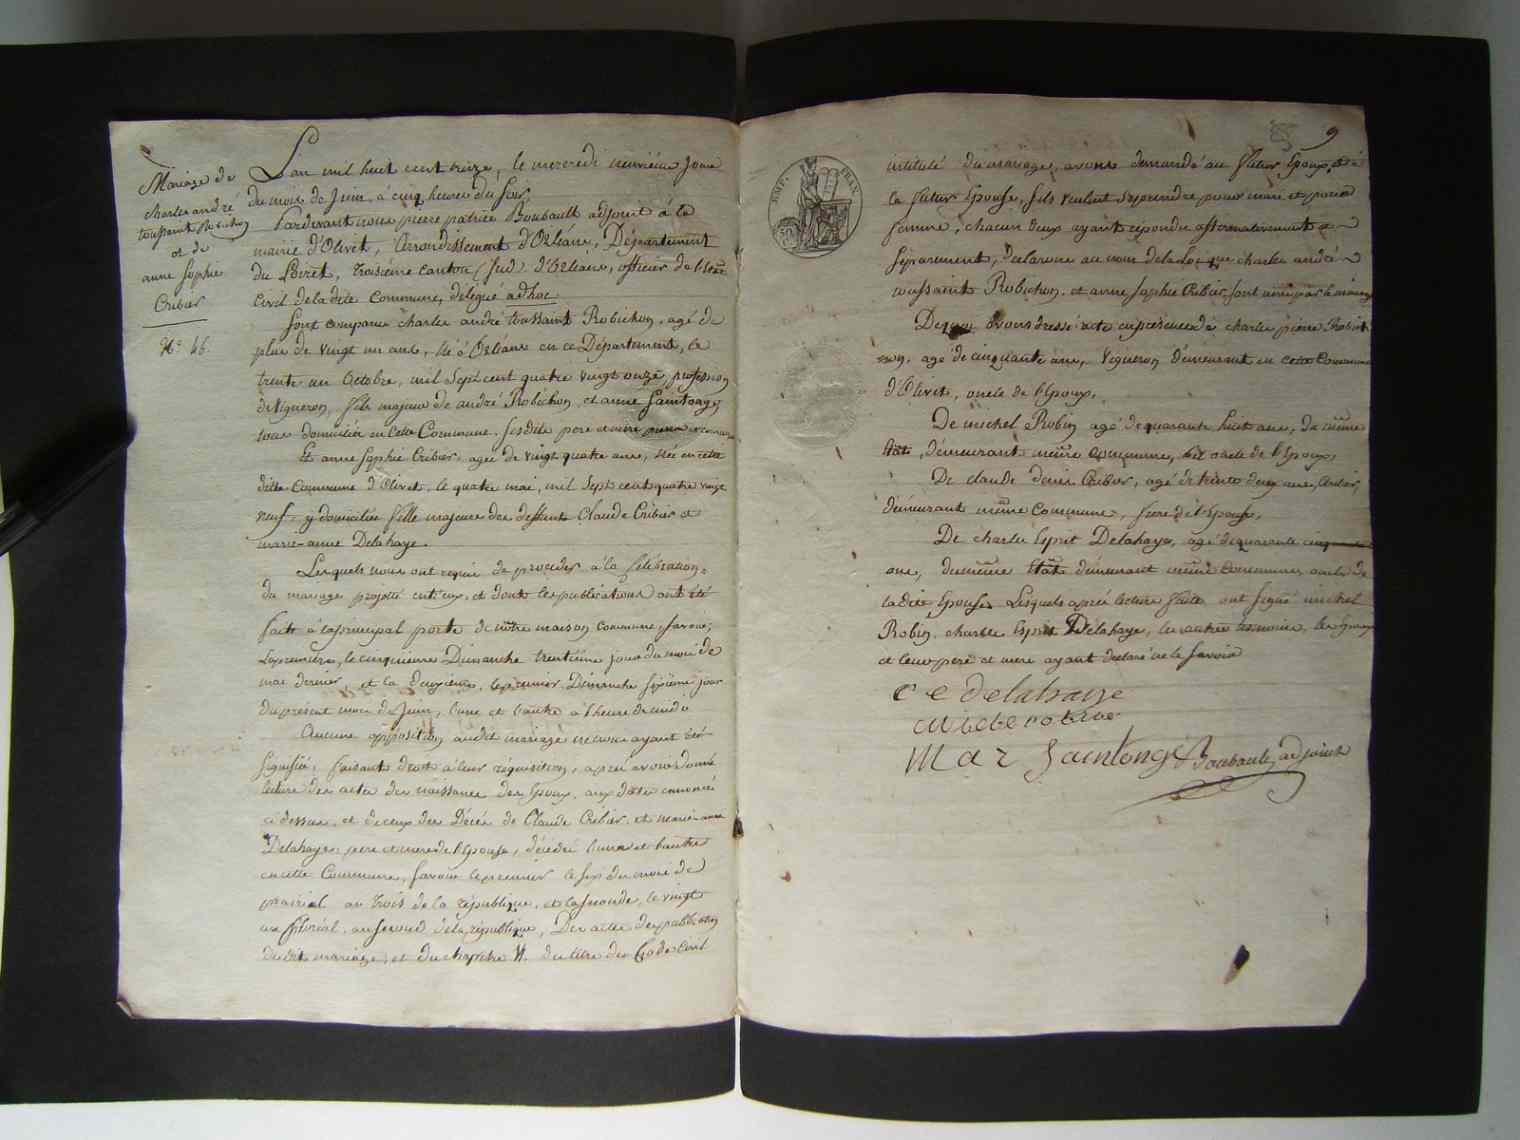 Mariage de
charles andré
toussaint Robichon
et de
anne Sophie
Cribier
N.o 46.
L'an mil huit cent treize, le mercredi neuvième jour
du mois de Juin, à cinq heures du soir,
Pardevant nous pierre patrice Boubault adjoint à la
mairie d'Olivet, Arrondissement d'Orléans, Département
du Loiret, troisième canton (sud) d'Orléans, officier de l'état
civil de la dite Commune, délégué adhoc
Sont comparus charles andré toussaint Robichon, agé de
plus de vingt un ans, né à Orléans en ce Département, le
trente un Octobre, mil sept cent quatre vingt onze, profession
de vigneron, fils majeur de andré Robichon, et anne Saintonge
tous domiciliés en cette Commune. Sesdits pere et mere
Et anne Sophie Cribier, agée de vingt quatre ans, née en cette
dite Commune d'Olivet, le quatre mai, mil sept cent quatre vingt
neuf, y domiciliée fille majeure des deffunts Claude Cribier et
marie-anne Delahaye.
Lesquels nous ont requis de procéder à la Célébration
du mariage projetté entr'eux, et dont les publications ont été
faites à la principal porte de notre maison commune, savoir;
La première, le cinquième Dimanche trentième jour du mois de
mai dernier, et la deuxième, le premier Dimanche sixième jour
du présent mois de Juin, l'une et l'autre à l'heure de midi
Aucune opposition audit mariage ne nous ayant été
signifiée, faisant droit à leur réquisition, après avoir donné
lecture des actes de naissance des Epoux, aux dates énoncées
ci dessus, et de ceux des Décès de Claude Cribier, et marie-anne
Delahaye, pere et mere de l'Epouse, décédés l'une et l'autre
en cette Commune, savoir le premier le six du mois de
prairial an trois de la république, et la seconde, le vingt
un floréal, an second de la république, Des actes de publication
dudit mariage, et du chapitre VI. du titre du Code Civil
EMP. FRAN.
9
intitulé du mariage, avons demandé au futur Epoux, et à
la future Epouse, s'ils veulent se prendre pour mari et pour
femme, chacun d'eux ayant répondu affirmativement et
séparement, déclarons au nom de la Loi que charles andré
toussaint Robichon, et anne Sophie Cribier, sont unis par le mariage
De quoi avons dressé acte en présence de charles pierre Robichon
agé de cinquante ans, Vigneron demeurant en cette Commune
d'Olivet, oncle de l'Epoux,
De michel Robin agé de quarante huit ans, du même
état, demeurant même Commune, oncle de l'Epoux,
De claude denis Cribier, agé de trente deux ans,
demeurant même Commune, frere de l'Epouse,
De charles Esprit Delahaye, agé de quarante cinq
ans, du même état demeurant même Commune, oncle de
ladite Epouse. Lesquels après lecture faite ont signé michel
Robin, charles Esprit Delahaye, les autres témoins, les Epoux
et leurs pere et mere ayant declaré ne le savoir
c e delahaye
Mar Saintonge Boubault, adjoint